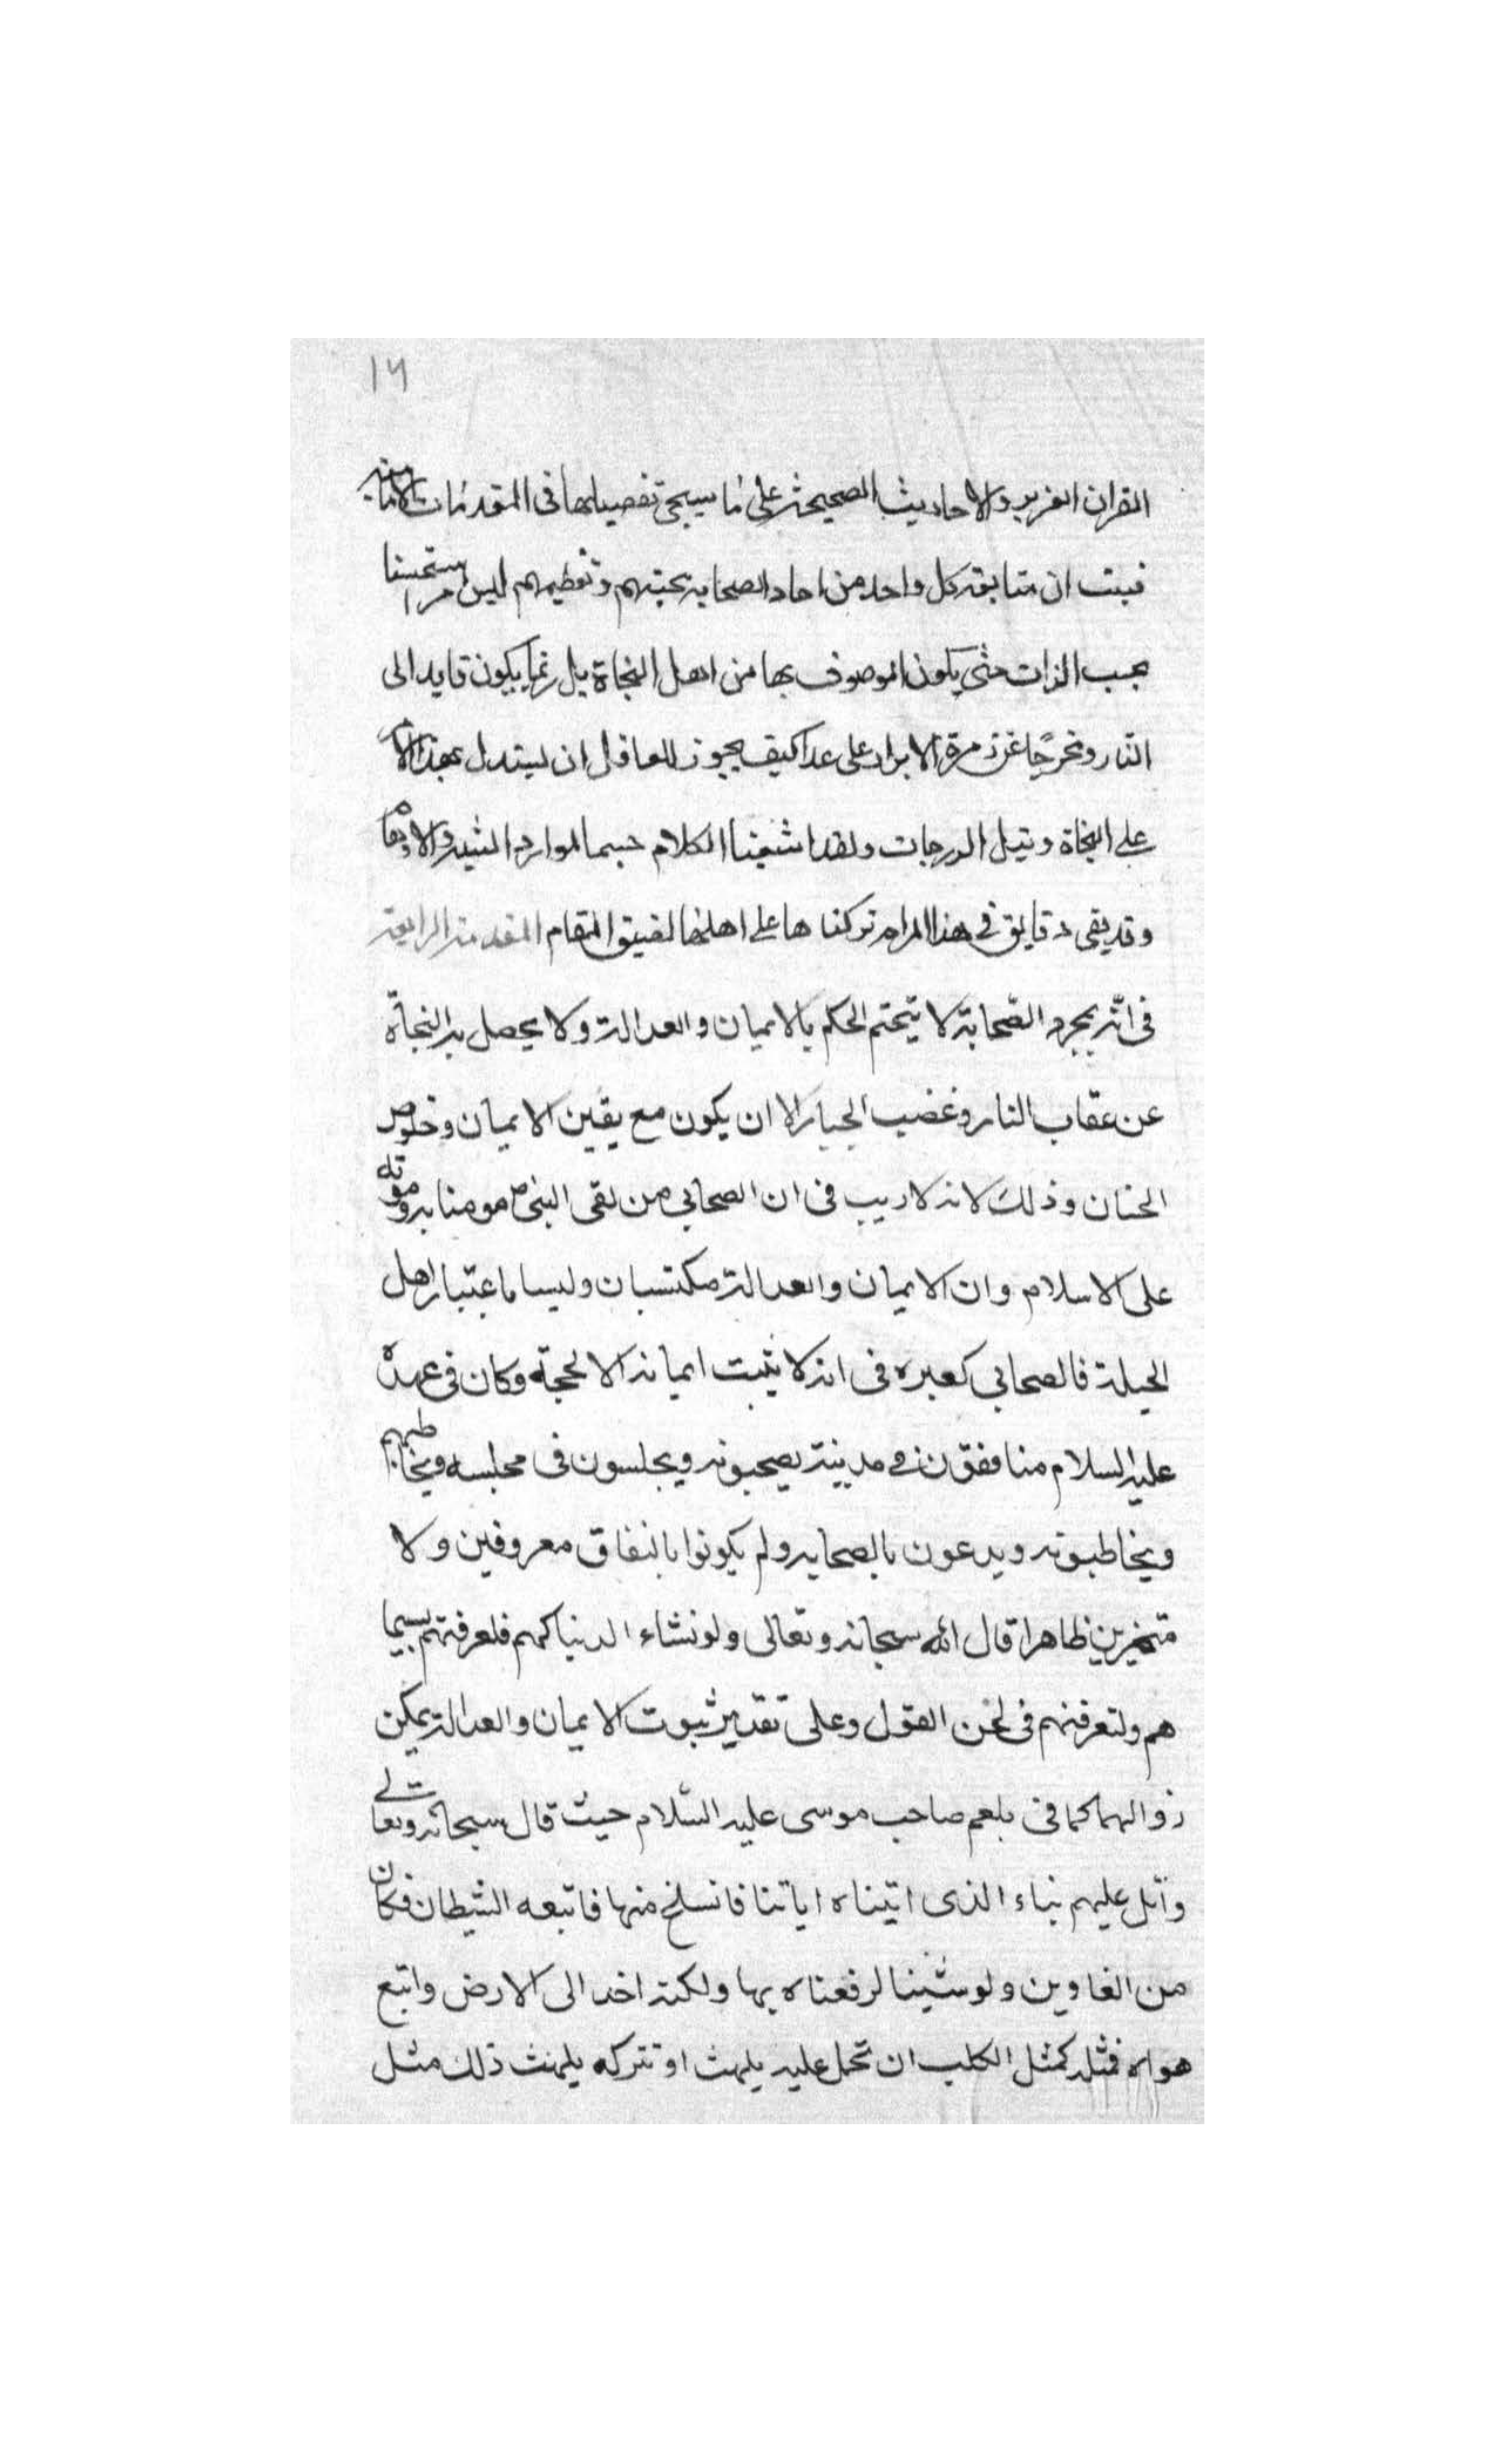 ١٦
القران العزيز والاحاديث الصحيحة على ما سيجئ تفصيلها فى المقدمات الاتية
فبت ان متابقة كل واحد من احاد الصحابة بحبتهم وتعظيمهم ليس امرا مستحسنا
بحسب الذات حتى يكون الموصوف بها من اهل النجاة بل ربما يكون قايد الى
النار ومخرجا عن زمرة الابرار على عدا كيف يجوز للعاقل ان يستدل بهذا
على النجاة ونيل الدرجات ولقد اشبعنا الكلام حسبما الموارد
وقد بقى دقايق فى هذا المرام تركنا ها على اهلها لضيق المقام المقدمة الرابعة
فى انه بمجرد الصحابة لا يتحتم الحكم بالايمان والعدالة ولا يحصل به النجاة
عن عقاب النار وغضب الجبار الا ان يكون مع يقين الايمان وخلوص
الجنان وذلك لانه لا ريب فى ان الصحابي من لقى النبى ص مومنا به وموته
على الاسلام وان الايمان والعدالة مكتسبان وليسا باعتبار اهل
الجبلة فالصحابي كغيره فى انه لا يثبت ايمانه الا لحجة وكان فى عهده
عليه السلام منافقون فى مدينة يصحبونه ويجلسون فى مجلسه ويخاطبهم
ويخاطبونه ويدعون بالصحابة ولم يكونوا بالنفاق معروفين ولا
متميزين ظاهرا قال الله سبحانه وتعالى ولو نشاء لارينا كهم فلعرفتهم بسيما
هم ولتعرفنهم فى لحن القول وعلى تقدير ثبوت الايمان والعدالة يمكن
زوالهما كما فى بلعم صاحب موسى عليه السلام حيث قال سبحانه وتعالے
واتل عليهم نباء الذى اتيناه اياتنا فانسلخ منها فاتبعه الشيطان فكان
من الغاوين ولو شئنا لرفعناه بها ولكنه اخد الى الارض واتبع
هواه فمثله كمثل الكلب ان تحمل عليه يلهث او تتركه يلهث ذلك مثل